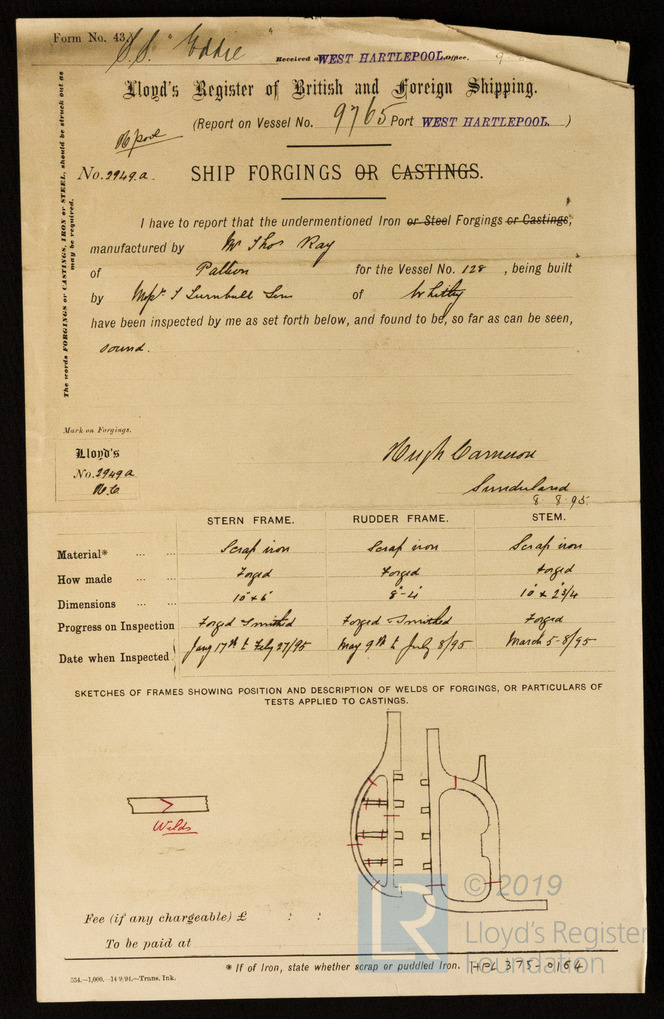 Form No. 43.
S.S. "Eddie"
Received at WEST HARTLEPOOL Office,
Lloyd's Register of British and Foreign Shipping.
(Report on Vessel No. 9765 Port WEST HARTLEPOOL. )
H'pool
No. 2949.a. SHIP FORGINGS OR CASTINGS.
The words FORGINGS or CASTINGS, IRON or STEEL, should be struck out as may be required.
I have to report that the undermentioned Iron or Steel Forgings or Castings,
manufactured by Mr Thos Ray
of Pallion for the Vessel No. 128 , being built
by Messrs T Turnbull Son of Whitby
have been inspected by me as set forth below, and found to be, so far as can be seen,
sound.
Mark on Forgings.
Lloyd's
No. 2949a
H.C.
Hugh Cameron
Sunderland
8 8 95
STERN FRAME. RUDDER FRAME. STEM.
Material* ... ... Scrap iron Scrap iron Scrap iron
How made ... ... Forged Forged Forged
Dimensions ... ... 10" x 6" 8"-4" 10" x 2 3/4
Progress on Inspection Forged Smithed Forged Smithed Forged
Date when Inspected Jany 17th to Feby 27/95 May 9th to July 8/95 March 5-8/95
SKETCHES OF FRAMES SHOWING POSITION AND DESCRIPTION OF WELDS OF FORGINGS, OR PARTICULARS OF
TESTS APPLIED TO CASTINGS.
Welds
Fee (if any chargeable) £ : :
To be paid at
* If of Iron, state whether scrap or puddled Iron. HPL 375-0164
554.—1,000.—14/9/94.—Trans. Ink.
© 2019
LR Lloyd's Register
Foundation